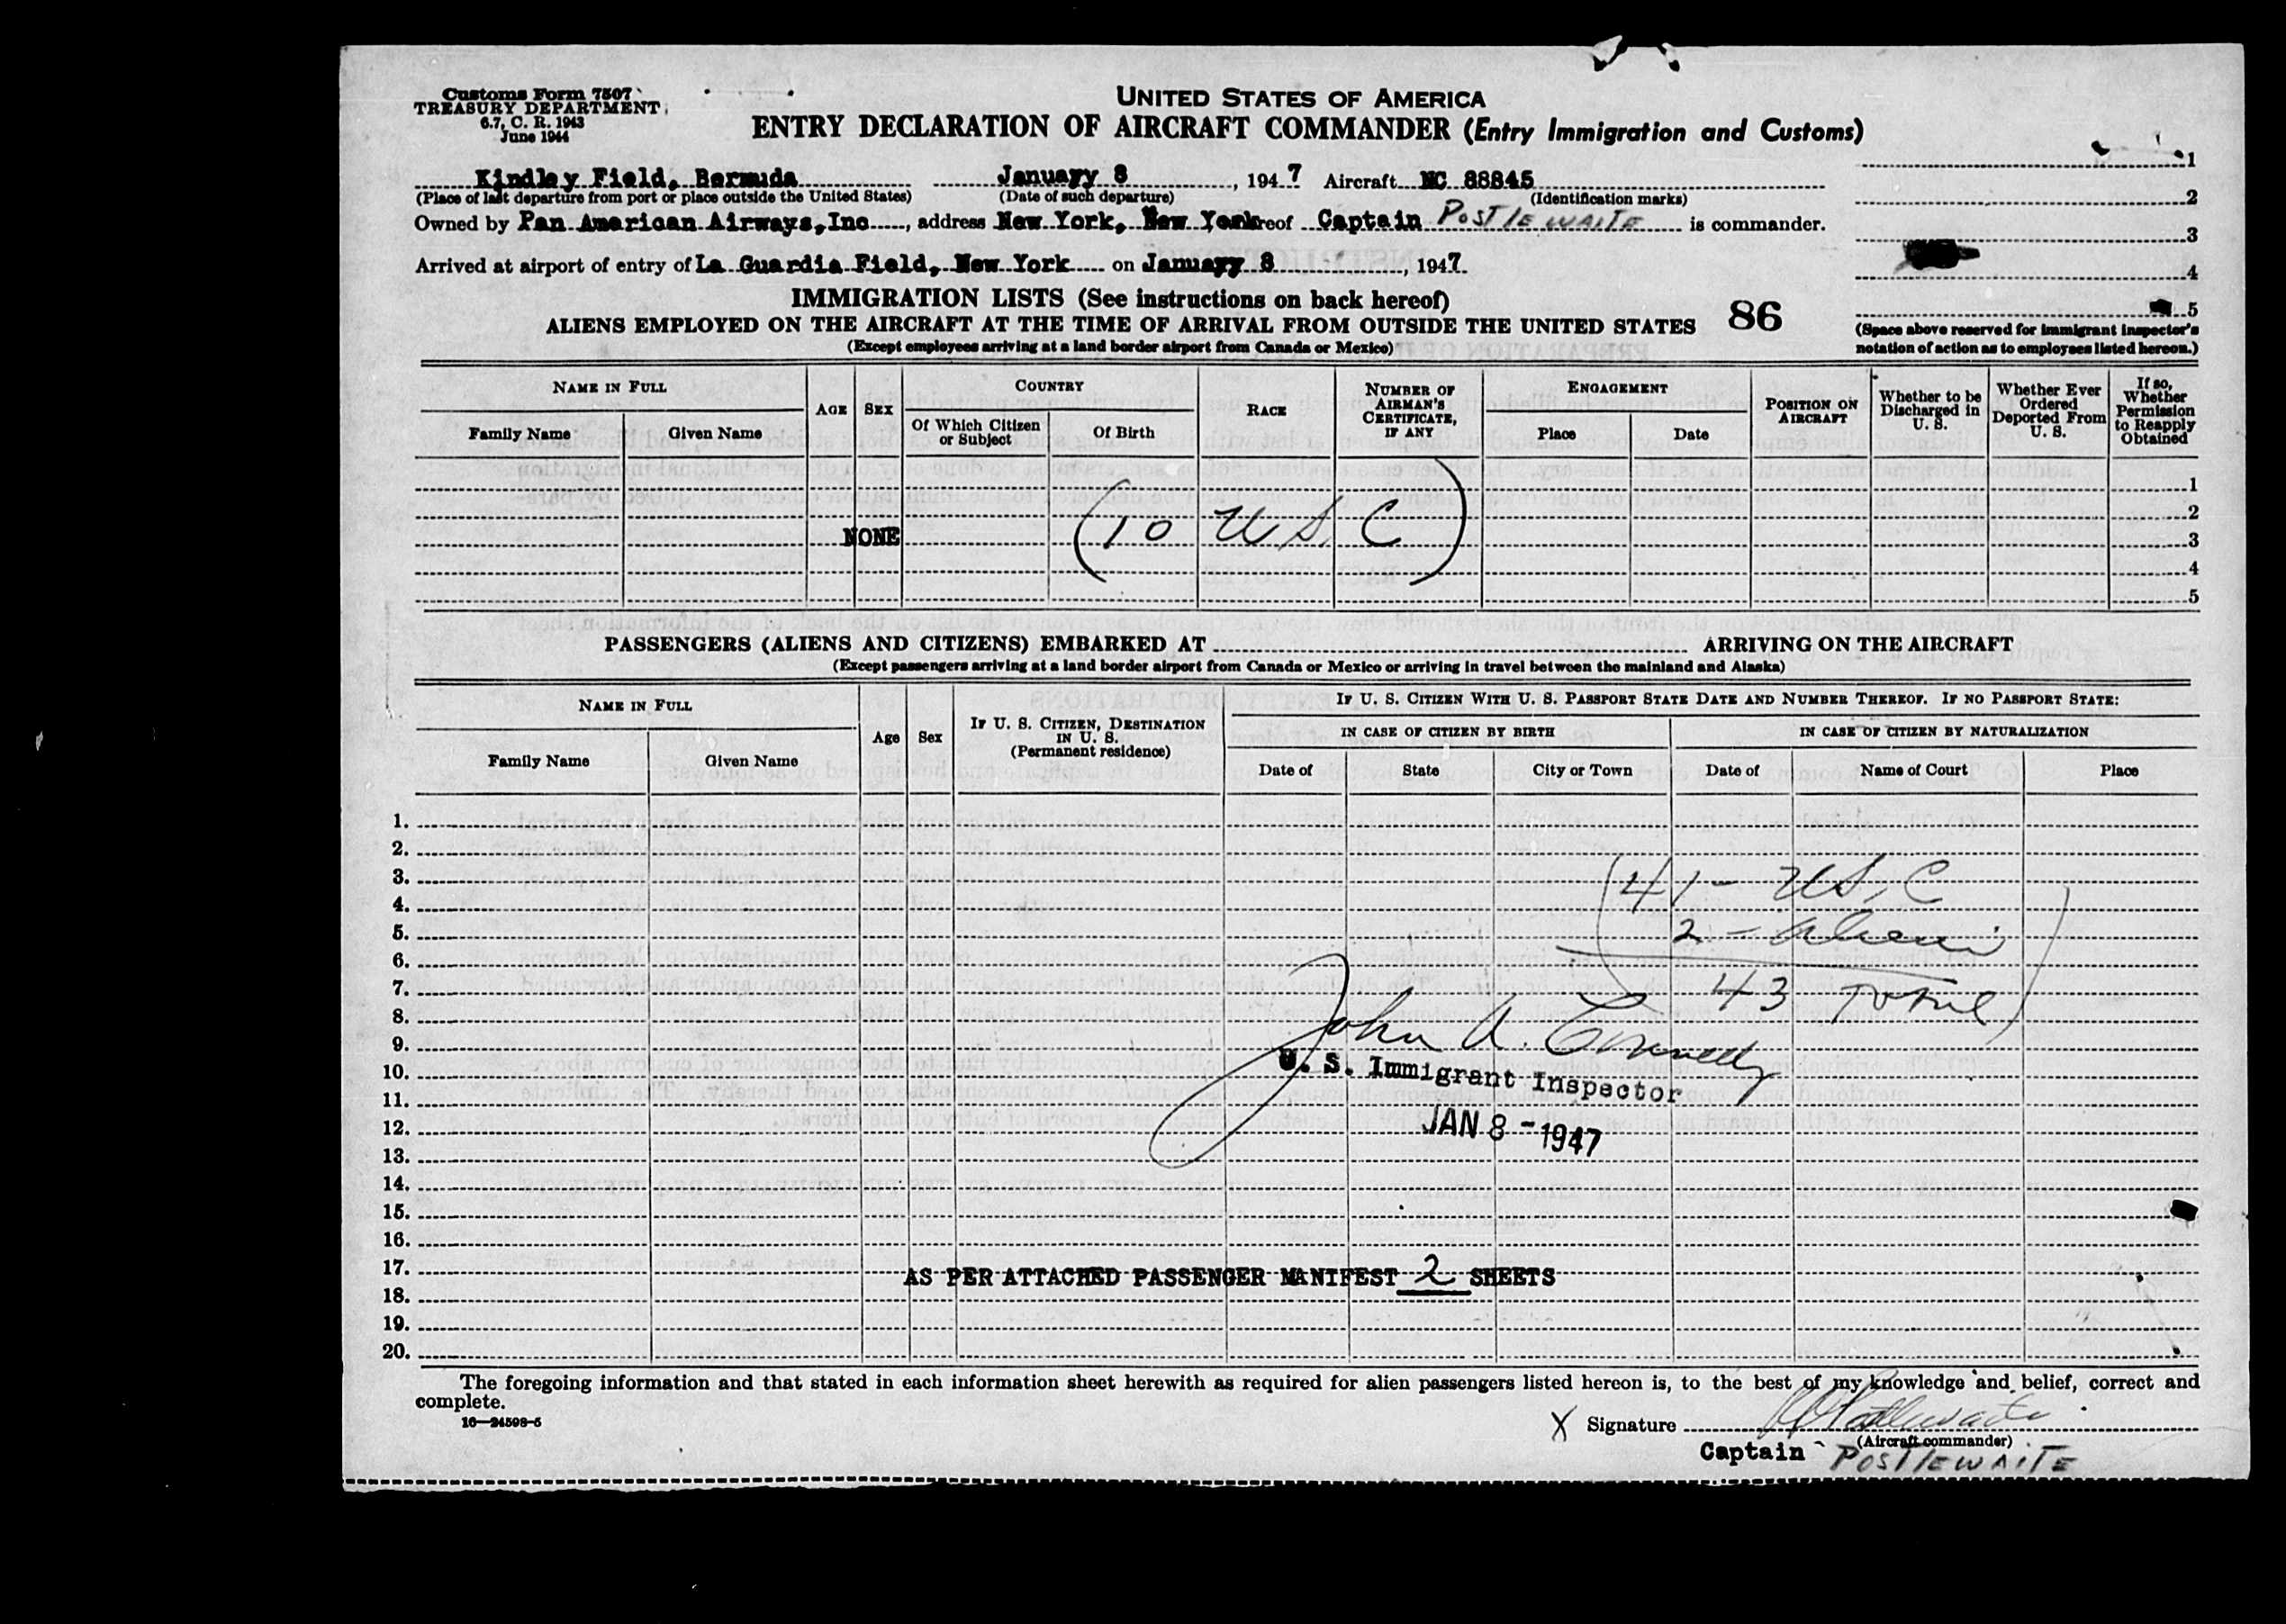 Customs Form 7507
TREASURY DEPARTMENT
6.7, C. R. 1943
June 1944
UNITED STATES OF AMERICA
ENTRY DECLARATION OF AIRCRAFT COMMANDER (Entry Immigration and Customs)
Kindley Field, Bermuda January 8, 1947 Aircraft NC 88845
(Place of last departure from port or place outside the United States) (Date of such departure) (Identification marks)
Owned by Pan American Airways, Inc, address New York, New York reof Captain POSTLEWAITE is commander.
Arrived at airport of entry of La Guardia Field, New York on January 8, 1947.
1
2
3
4
5
IMMIGRATION LISTS (See instructions on back hereof)
ALIENS EMPLOYED ON THE AIRCRAFT AT THE TIME OF ARRIVAL FROM OUTSIDE THE UNITED STATES 86
(Except employees arriving at a land border airport from Canada or Mexico)
(Space above reserved for immigrant inspector's
notation of action as to employees listed hereon.)
NAME IN FULL
Family Name Given Name
AGE SEX
COUNTRY
Of Which Citizen or Subject Of Birth
RACE
NUMBER OF AIRMAN'S CERTIFICATE, IF ANY
ENGAGEMENT
Place Date
POSITION ON AIRCRAFT
Whether to be Discharged in U. S.
Whether Ever Ordered Deported From U. S.
If so, Whether Permission to Reapply Obtained
1
2
NONE (10 USC) 3
4
5
PASSENGERS (ALIENS AND CITIZENS) EMBARKED AT ARRIVING ON THE AIRCRAFT
(Except passengers arriving at a land border airport from Canada or Mexico or arriving in travel between the mainland and Alaska)
NAME IN FULL
Family Name Given Name
Age Sex
IF U. S. CITIZEN, DESTINATION IN U. S. (Permanent residence)
IF U. S. CITIZEN WITH U. S. PASSPORT STATE DATE AND NUMBER THEREOF. IF NO PASSPORT STATE:
IN CASE OF CITIZEN BY BIRTH IN CASE OF CITIZEN BY NATURALIZATION
Date of State City or Town Date of Name of Court Place
1.
2.
3. 41 - USC
4.
5. 2 - Aliens
6.
7. 43 Total
8.
9. John A. Connelly
10. U. S. Immigrant Inspector
11.
12. JAN 8 - 1947
13.
14.
15.
16.
17. AS PER ATTACHED PASSENGER MANIFEST 2 SHEETS
18.
19.
20.
The foregoing information and that stated in each information sheet herewith as required for alien passengers listed hereon is, to the best of my knowledge and belief, correct and
complete.
16—24598-5
X Signature Postlewaite
(Aircraft commander)
Captain POSTLEWAITE